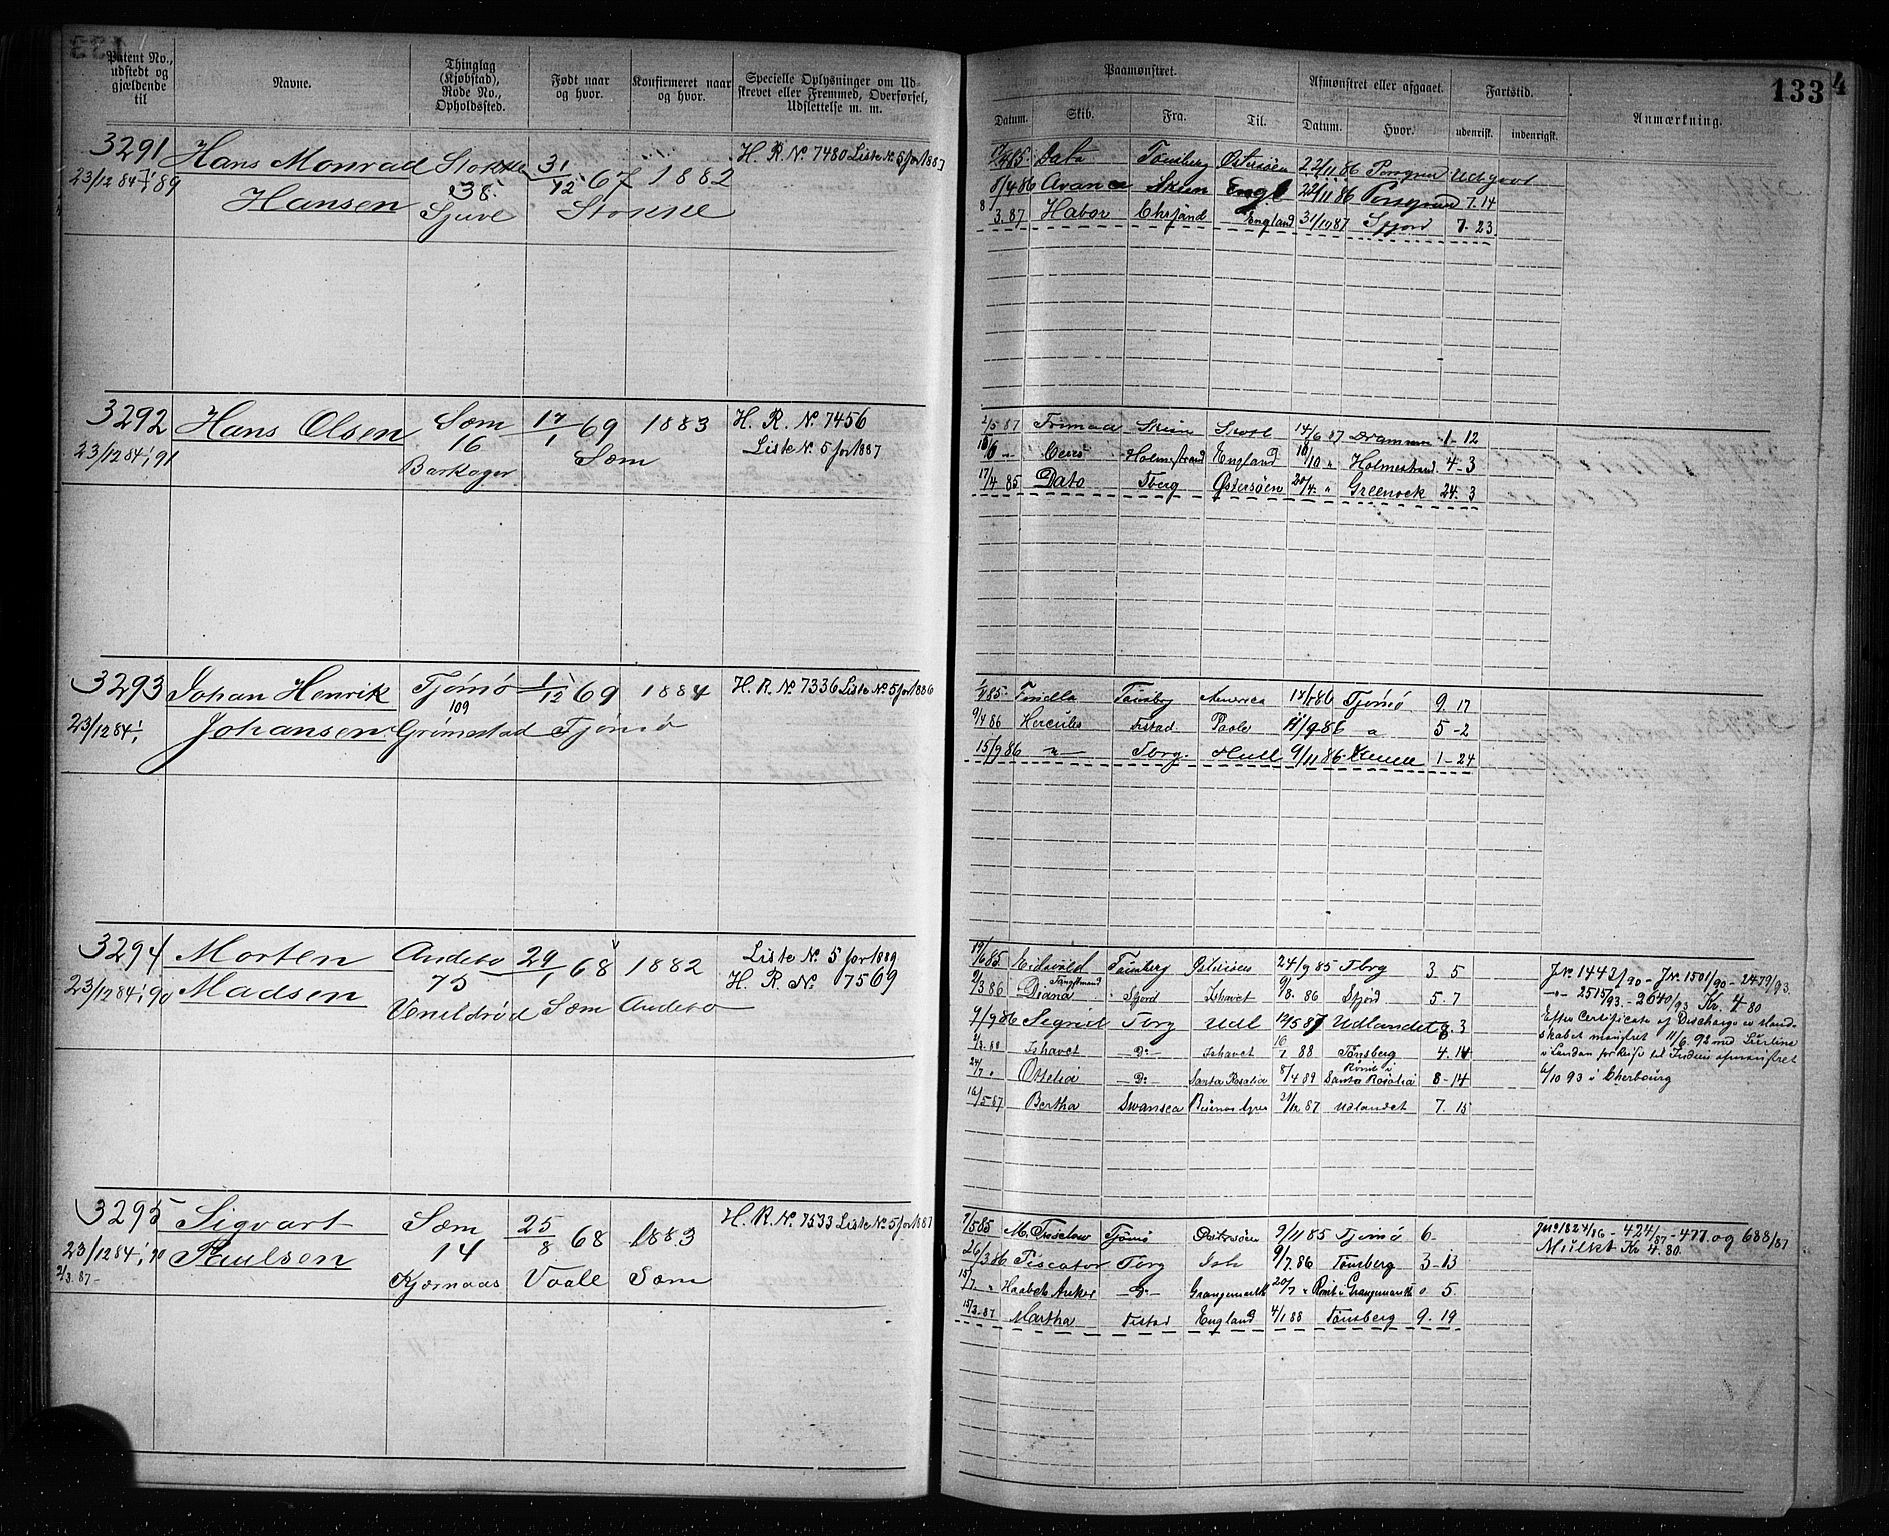 133
Patent No., udstedt og gjældende til
Navne.
Thinglag (Kjøbstad), Rode No., Opholdssted.
Født naar og hvor.
Konfirmeret naar og hvor.
Specielle Oplysninger om Udskrevet eller Fremmed, Overførsel, Udslettelse m. m.
Paamønstret.
Datum.
Skib.
Fra.
Til.
Afmønstret eller afgaaet.
Datum.
Hvor.
Fartstid.
udenrigsk.
indenrigsk.
Anmærkning.
3291 Hans Monrad Stokke 31/12 67 1882 H. R. No 7480 Liste No 5 for 1887
23/12 84 1/1 89 Hansen 238. Stokke
Data Tønsberg Østersøen 22/11 86 Porsgrun Udgaat
8/4 86 Skien Engl 22/11 86 Porsgrund 7. 14
8/3. 87 Habor England 31/10 87 Sfjord 7- 23
3292 Hans Olsen Sæm 17/1 69 1883 H. R. No 7456
23/12 84 1/1 91 16 Sæm Liste No 5 for 1887
Barkager
2/5 87 Skien 14/6 87 Drammen 1-12
Holmestrand England 18/10 " Holmestrand 4-3
17/4 85 Data Tberg Østersøen 20/4 " Greenock 24. 3
3293 Johan Henrik Tjömö 1/12 69 1884 H. R. No 7336 Liste No 5 for 1886
23/12 84 Johansen 109 Grimestad Tjömö
Tönsbg America 86 Tjömö 9. 17
9/4 86 Hercules Poole 11/9 86 " 5-2
15/9 86 -"- Tbrg. Hull 9/11 86 1-24
3294 Morten Andebo 29/1 68 1882 Liste No 5 for 1889
23/12 84 1/1 90 Madsen 75 Sæm Andebo H. R. No 7569
19/6 85 Eidsvold Tönsberg Østersöen 24/9 85 Tbrg 3. 5
2/3 86 Diana Fangstmand Sfjord Ishavet 9/8. 86 Sfjord 5. 7
9/9 86 Sigrid Tbrg Udl 87 Udlandet 8. 3
2/3. 88 Ishavet -Do- Ishavet 16/7 88 Tönsberg 4. 14
24/7 " Ottilia -Do- Santa Rosalia 8/4 89 Römt i Santa Rosalia 8-14
16/5 87 Bertha Swansea Buenos Ayres 87 Udlandet 7. 15
J No 1442/90 - J No 1501/90 - 2479/93.
-"- 2515/93. - 2640/93 Kr. 4 80
Efter Certificate of Discharge er Mand-
skabet mønstret 11/6 92 med Lurline
i London for Reise til Indien afmønstret
6/10 93 i Cherbourg
3295 Sigvart Sæm 25/8 68 1883 H. R. No 7533 Liste No 5 for 1887
23/12 84 1/1 90 Paulsen 14
2/3. 87 - Kjærnaas Vaale Sæm
7/5 85 Tjömö Østersöen 9/11 85 Tjömö 6-
26/3. 86 Piscator Tbrg Ish 9/7. 86 Tönsberg 3-13
15/7. " Haabets Anker -Do- Grangemouth 20/7 " Römt i Grangemouth 0. 5.
15/3. 87 Martha England 4/1 88 Tönsberg 9. 19
J No 1824/86 - 424/87 - 477 og 688/87
Mulkt Kr 4.80.